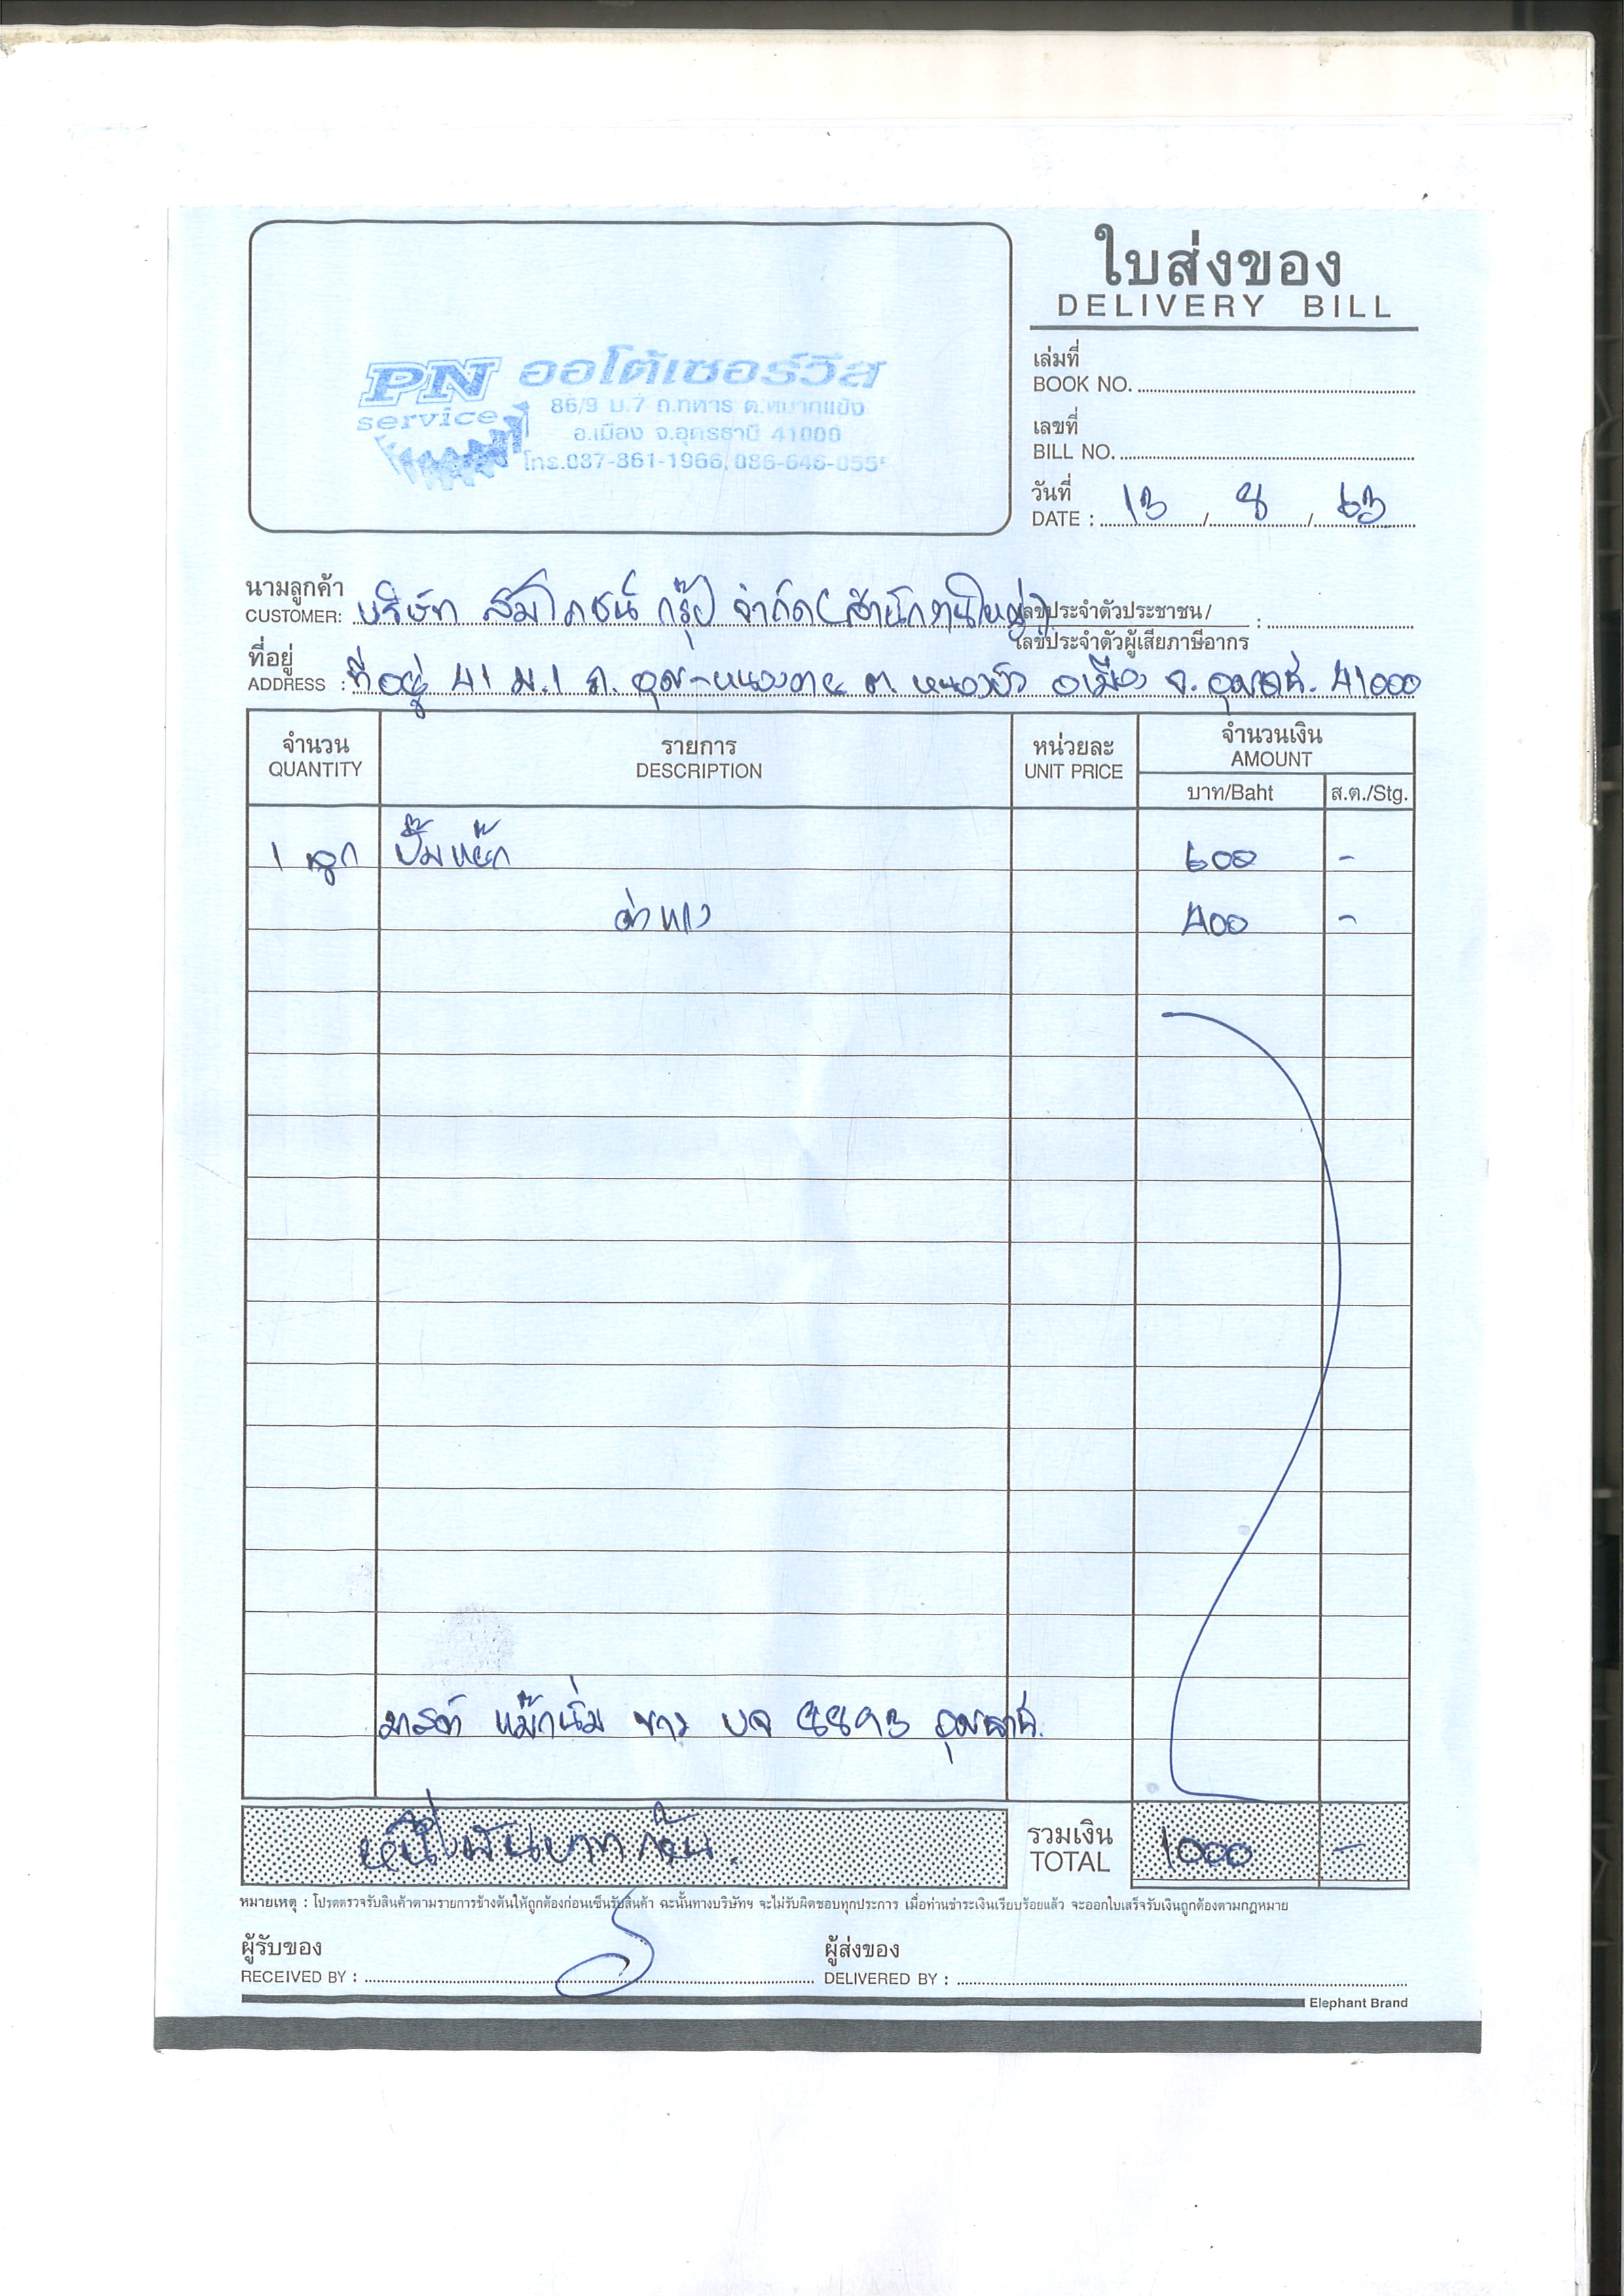 ใบส่งของ
DELIVERY BILL
PN service ออโต้เซอร์วิส
86/9 ม.7 ถ.ทหาร ต.หมากแข้ง
อ.เมือง จ.อุดรธานี 41000
โทร.087-861-1966, 086-646-055
เล่มที่
BOOK NO.
เลขที่
BILL NO.
วันที่
DATE : 13 / 8 / 63
นามลูกค้า
CUSTOMER: บริษัท สัมโภชน์ กรุ๊ป จำกัด (สำนักงานใหญ่)
เลขประจำตัวประชาชน /
เลขประจำตัวผู้เสียภาษีอากร :
ที่อยู่
ADDRESS : ที่อยู่ 41 ม.1 ถ. อุดร-หนองคาย ต. หนองบัว อ เมือง จ. อุดรธานี. 41000
จำนวน รายการ หน่วยละ จำนวนเงิน
QUANTITY DESCRIPTION UNIT PRICE AMOUNT
บาท/Baht ส.ต./Stg.
1 ลูก ปั๊ม 600 -
ค่าแรง 400 -
ขาว บจ 8893 อุดรธานี.
หนึ่งพันบาทถ้วน. รวมเงิน
TOTAL 1000 -
หมายเหตุ : โปรดตรวจรับสินค้าตามรายการข้างต้นให้ถูกต้องก่อนเซ็นรับสินค้า ฉะนั้นทางบริษัทฯ จะไม่รับผิดชอบทุกประการ เมื่อท่านชำระเงินเรียบร้อยแล้ว จะออกใบเสร็จรับเงินถูกต้องตามกฎหมาย
ผู้รับของ ผู้ส่งของ
RECEIVED BY : DELIVERED BY :
Elephant Brand